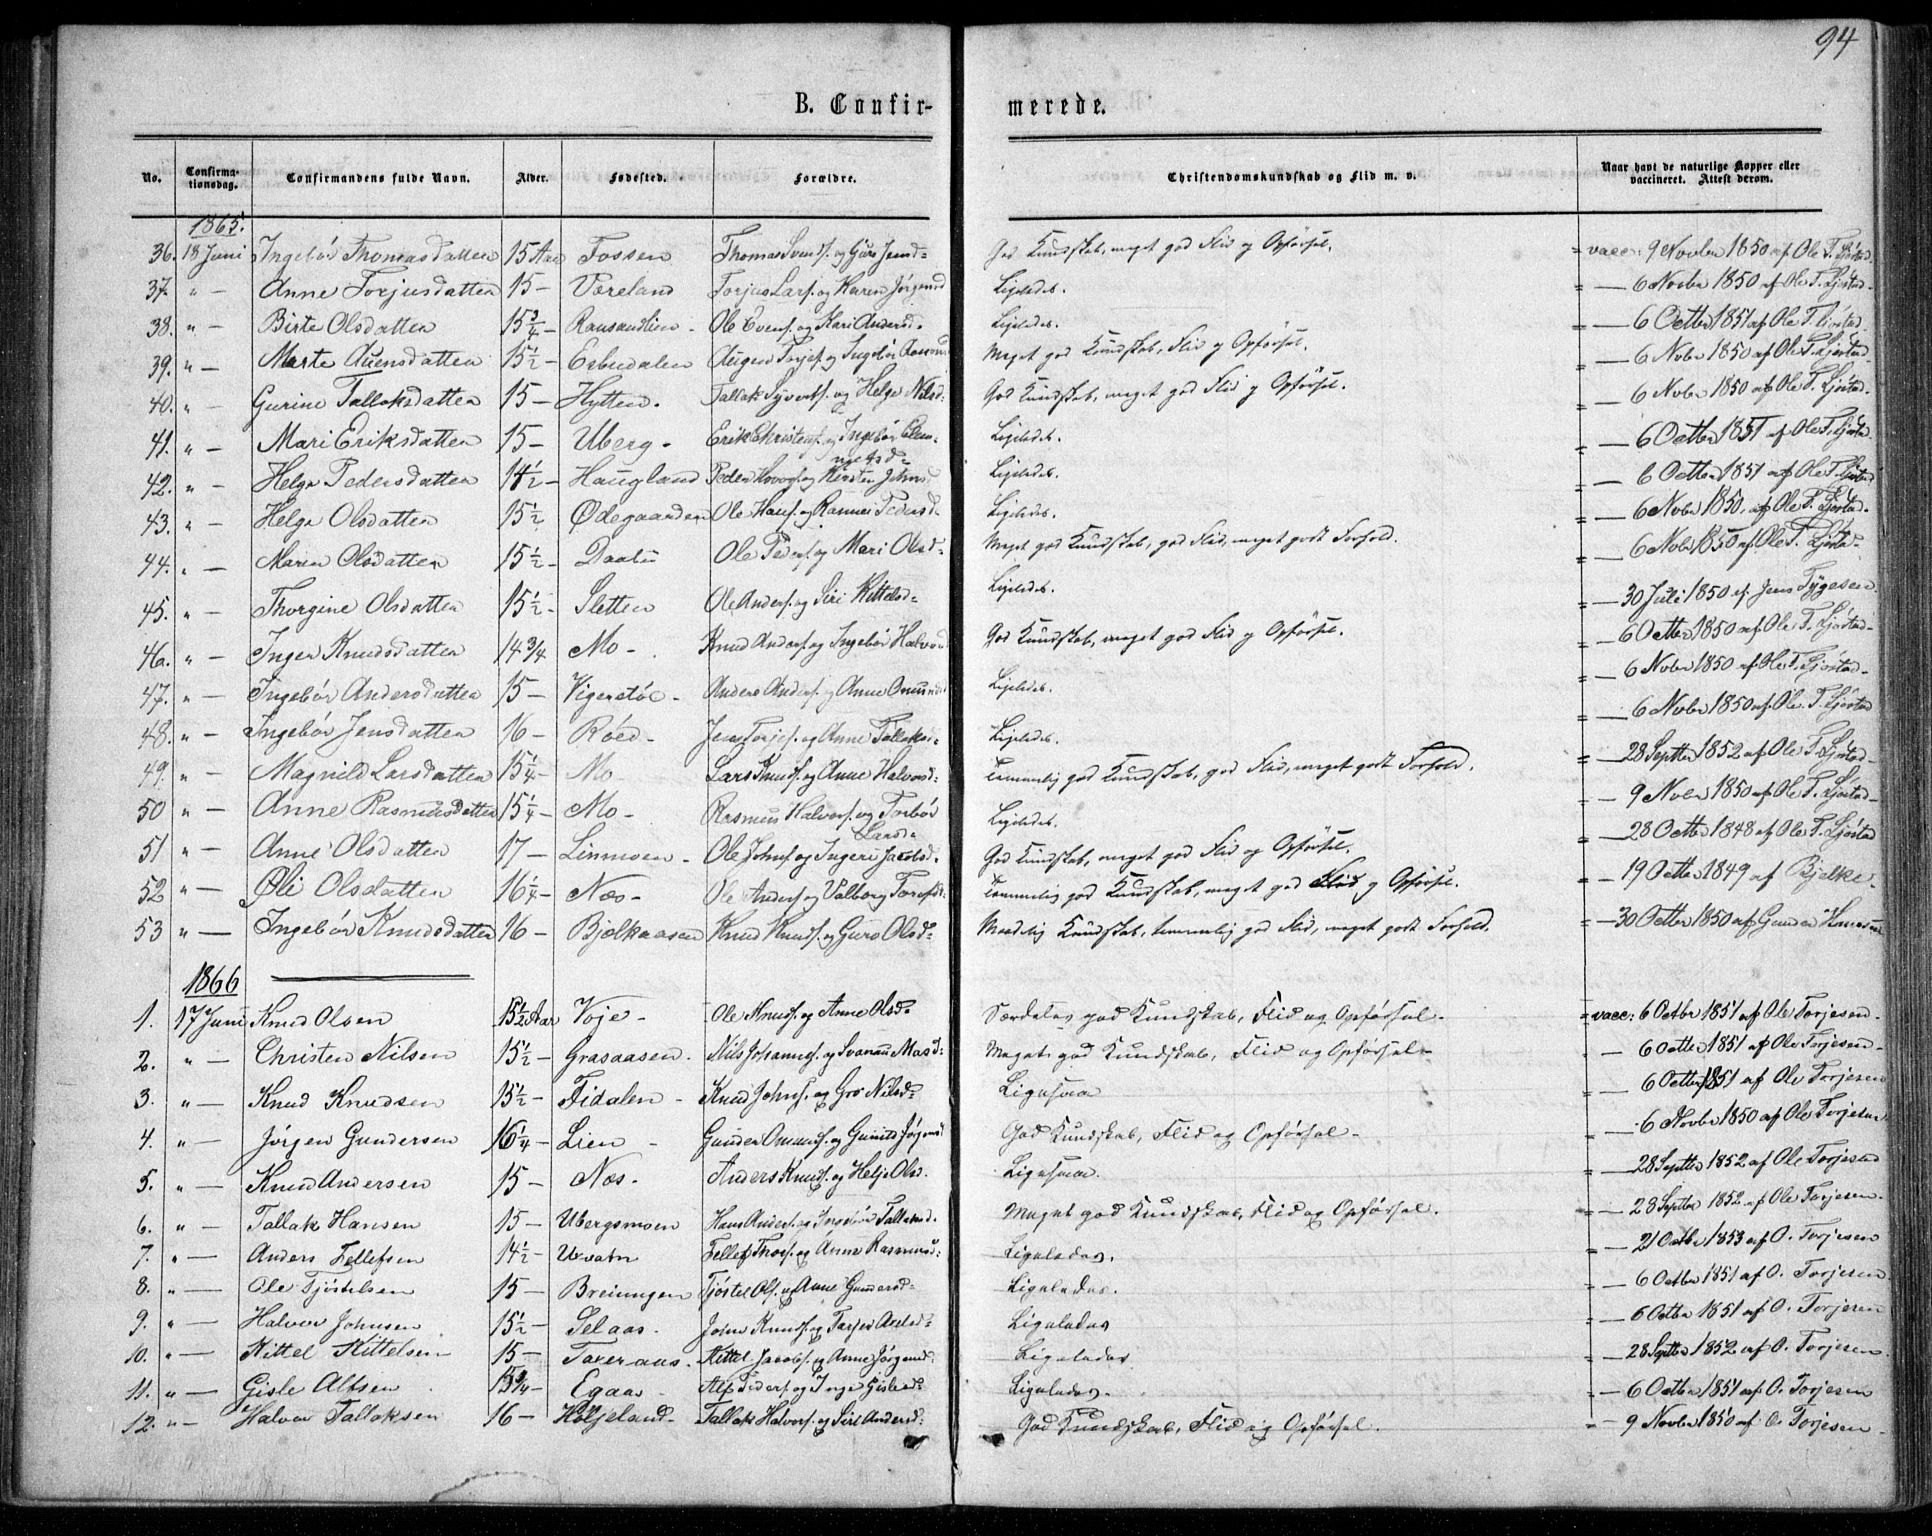 94
B. Confirmerede.
No. Confirmationsdag. Confirmandens fulde Navn. Alder. Fødested. Forældre. Christendomskundskab og Flid m. v. Naar havt de naturlige Kopper eller vaccineret. Attest derom.
1865.
36. 18 Juni Ingebør Thomasdatter 15 Aar Fossen Thomas Svends. og Guro Jensd= God Kundskab, meget god Flid og Opførsel. = vacc: 9 Novbr 1850 af Ole T. Ljøstad
37. " — Anne Torjusdatter 15 — Væreland Torjus Lars. og Karen Jørgensd Ligeledes. = — 6 Novbr 1850 af Ole T. Ljøstad.
38. " — Birte Olsdatter 15 3/4 — Ransandlien - Ole Evens. og Kari Andersd. Ligeledes. = — 6 Octbr 1851 af Ole T. Ljøstad
39. " — Marte Auensdatter 15 1/2 — Esbudalen Augen Torjes. og Ingebør Meget god Kundskab, Flid og Opførsel. = — 6 Novbr 1850 af Ole T. Ljøstad.
40. " — Gurine Tallaksdatter 15 — Hytten. Tallak Syverts. og Helge Nilsd= God Kundskab, meget god Flid og Opførsel. = — 6 Novbr 1850 af Ole T. Ljøstad.
41. " — Mari Eriksdatter 15 — Uberg - Erik Christens. og Ingebør Clemmetsd= Ligeledes. = — 6 Octbr 1851 af Ole T. Ljøstad.
42. " — Helge Pedersdatter 14 1/2 — Haugland Peder Hovors. og Kirsten Johns. Ligeledes. = — 6 Octbr 1851 af Ole T. Ljøstad
43. " — Helge Olsdatter 15 1/2 Ødegaarden Ole Hans. og Rannei Pedersd= Ligeledes. = — 6 Novbr 1850. af Ole T. Ljøstad.
44. " — Maren Olsdatter 15 1/2 — Daabu Ole Peders. og Mari Olsd= Meget god Kundskab, god Flid, meget godt Forhold. = — 6 Novbr 1850 af Ole T. Ljøstad-
45. " — Thorgine Olsdatter 15 1/2 — Sletten Ole Anders. og Siri Kittelsd= Ligeledes. = — 30 Juli 1850 af Jens Tygesen
46. " — Inger Knudsdatter 14 3/4 Mo - Knud Anders. og Ingebør Halvord God Kundskab, meget god Flid og Opførsel. = — 6 Octbr 1850 af Ole T. Ljøstad
47. " — Ingebør Andersdatter 15 — Vigerstøl - Anders Anders. og Anne Omunds Ligeledes. = — 6 Novbr 1850 af Ole T. Ljøstad-
48. " — Ingebør Jensdatter 16 — Røed - Jens Torjes. og Anne Tallaksd= Ligeledes. = — 6 Novbr 1850 af Ole T. Ljøstad
49. " — Magnild Larsdatter 15 1/4 — Mo Lars Knuds. og Anne Halvorsd= Temmelig god Kundskab, god Flid, meget godt Forhold. = — 28 Septbr 1852 af Ole T. Ljøstad
50 " — Anne Rasmusdatter 15 1/4 — Mo - Rasmus Halvors. og Torbør Larsd= Ligeledes. = — 9 Novbr 1850 af Ole T. Ljøstad-
51 " — Anne Olsdatter 17 — Linmoen - Ole Johns. og Ingeri Jacobsd. God Kundskab, meget god Flid og Opførsel. = — 28 Octbr 1848 af Ole T. Ljøstad
52 " — Øli Olsdatter 16 1/4 — Næs - Ole Anders. og Valborg Temmelig god Kundskab, meget god Flid og Opførsel. = — 19 Octbr 1849 af Bjelke.
53 " — Ingebør Knudsdatter 16 — Bjelkaasen Knud Knuds. og Guro Olsd= Maadelig Kundskab, temmelig god Flid, meget godt Forhold. = — 30 Octbr 1850 af Gunder
1866
1. 17 Juni Knud Olsen 15 1/2 Aar Voje - Ole Knuds. og Anne Olsd= Særdeles god Kundskab, Flid og Opførsel. = vacc: 6 Octbr 1851 af Ole Torjesen.
2. " — Christen Nilsen 15 1/2 — Grasaasen. Nils Johannes. og Svanau Masd= Meget god Kundskab, Flid og Opførsel - — 6 Octbr 1851 af Ole Torjesen-
3. " — Knud Knudsen 15 1/2 — Fidalen - Knud Johns. og Gro Nilsd= Ligesaa = — 6 Octbr 1851 af Ole Torjesen
4. " — Jørgen Gundersen 16 1/4 — Lien - Gunder Omunds. og Gunild Jørgensd God Kundskab, Flid og Opførsel - — 6 Novbr 1850 af Ole Torjesen
5. " — Knud Andersen 15 — Næs - Anders Knuds. og Helje Olsd. Ligesaa. = — 28 Septbr 1852 af Ole Torjesen
6. " — Tallak Hansen 15 — Ubergsmoen Hans Anders. og Ingebør Tallaksd. Meget god Kundskab, Flid og Opførsel. = — 28 Septbr 1852 af Ole Torjesen.
7. " — Anders Tellefsen 14 1/2 — Uvatn Tellef Thors. og Anne Rasmusd= Ligeledes. = — 21 Octbr 1853 af O. Torjesen
8. " — Ole Tjøstelsen 15 — Breiungen Tjøstel Ols. og Anne Gundersd= Ligeledes. = — 6 Octbr 1851 af O. Torjesen.
9. " — Halvor Johnsen 15 1/2 — Selaas. John Knuds. og Ligeledes = — 6 Octbr 1851 af O. Torjesen
10. " — Kittel Kittelsen 15 — Taxeraas. Kittel Jacobs. og Anne Jørgensd. Ligeledes = — 28 Septbr 1852 af O. Torjesen.
11. " — Gisle Alfsen 15 3/4 — Egaas - Alf Peders. og Inge Gislesd= Ligeledes. = — 6 Octbr 1851 af O. Torjesen
12. " — Halvor Tallaksen 16 — Høljeland - Tallak Halvors. og Siri Andersd= God Kundskab, Flid og Opførsel. = — 9 Novbr 1850 af O. Torjesen